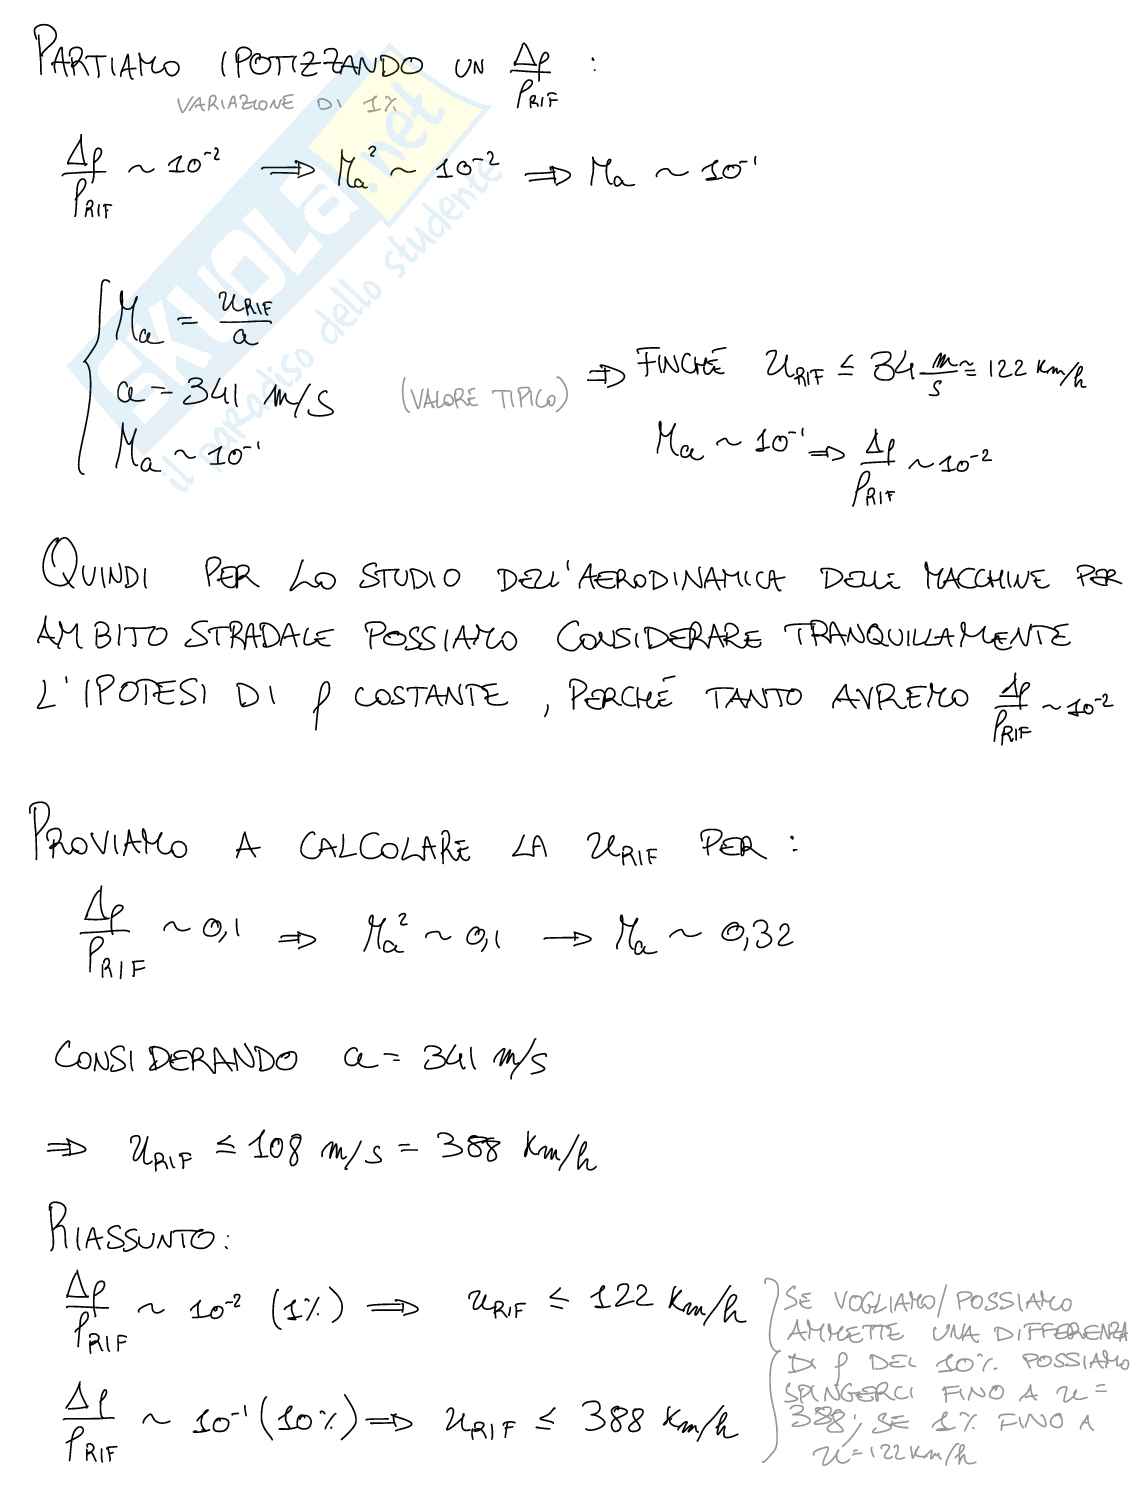 PARTIAMO IPOTIZZANDO UN Δρ/ρRIF :
VARIAZIONE DI 1%
Δρ/ρRIF ~ 10⁻² ⟹ Ma² ~ 10⁻² ⟹ Ma ~ 10⁻¹
Ma = uRIF/a
a = 341 m/s (VALORE TIPICO)
Ma ~ 10⁻¹
⟹ FINCHÉ uRIF ≤ 34 m/s ≅ 122 Km/h
Ma ~ 10⁻¹ ⟹ Δρ/ρRIF ~ 10⁻²
QUINDI PER LO STUDIO DELL'AERODINAMICA DELLE MACCHINE PER
AMBITO STRADALE POSSIAMO CONSIDERARE TRANQUILLAMENTE
L'IPOTESI DI ρ COSTANTE, PERCHÉ TANTO AVREMO Δρ/ρRIF ~ 10⁻²
PROVIAMO A CALCOLARE LA uRIF PER :
Δρ/ρRIF ~ 0,1 ⟹ Ma² ~ 0,1 → Ma ~ 0,32
CONSIDERANDO a = 341 m/s
⟹ uRIF ≤ 108 m/s = 388 Km/h
RIASSUNTO:
Δρ/ρRIF ~ 10⁻² (1%) ⟹ uRIF ≤ 122 Km/h
Δρ/ρRIF ~ 10⁻¹ (10%) ⟹ uRIF ≤ 388 Km/h
SE VOGLIAMO/POSSIAMO
AMMETTE UNA DIFFERENZA
DI ρ DEL 10% POSSIAMO
SPINGERCI FINO A u =
388; SE 1% FINO A
u = 122 Km/h
SKUOLA.net
il paradiso dello studente